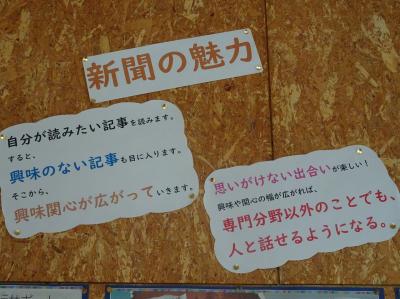 新聞の魅力
自分が読みたい記事を読みます。
すると、
興味のない記事も目に入ります。
そこから、
興味関心が広がっていきます。
思いがけない出合いが楽しい！
興味や関心の幅が広がれば、
専門分野以外のことでも、
人と話せるようになる。